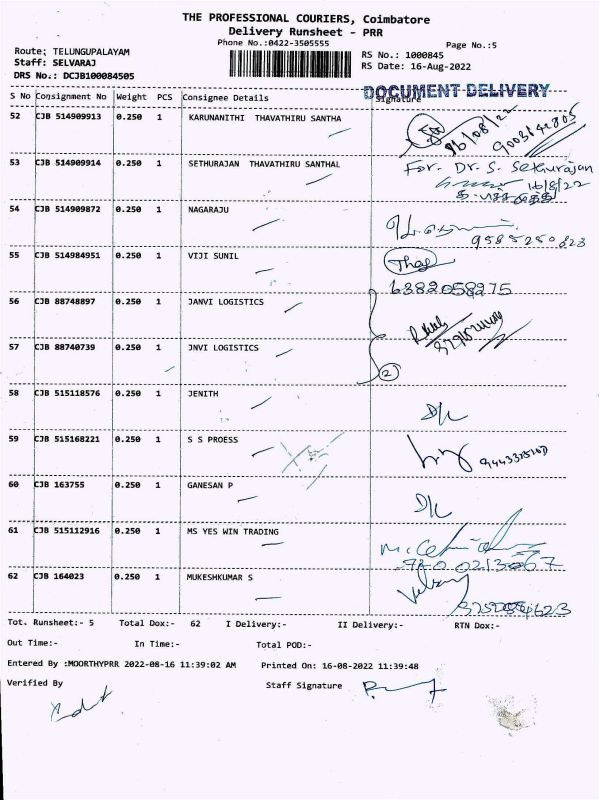 THE PROFESSIONAL COURIERS, Coimbatore
Delivery Runsheet - PRR
Phone No.:0422-3505555
Page No.:5
Route; TELUNGUPALAYAM
Staff: SELVARAJ
DRS No.: DCJB100084505
RS No.: 1000845
RS Date: 16-Aug-2022
DOCUMENT DELIVERY
S No Consignment No Weight PCS Consignee Details Signature
52 CJB 514909913 0.250 1 KARUNANITHI THAVATHIRU SANTHA 16/08/22 9003142805
53 CJB 509909914 0.250 1 SETHURAJAN THAVATHIRU SANTHAL For. Dr. S. Sethurajan
16/8/22
54 CJB 514909872 0.250 1 NAGARAJU
55 CJB 514984951 0.250 1 VIJI SUNIL
6382058275
56 CJB 88748897 0.250 1 JANVI LOGISTICS
57 CJB 88740739 0.250 1 JNVI LOGISTICS
2
58 CJB 515118576 0.250 1 JENITH D/L
59 CJB 515168221 0.250 1 S S PROESS
60 CJB 163755 0.250 1 GANESAN P D/L
61 CJB 515112916 0.250 1 MS YES WIN TRADING
62 CJB 164023 0.250 1 MUKESHKUMAR S
Tot. Runsheet:- 5 Total Dox:- 62 I Delivery:- II Delivery:- RTN Dox:-
Out Time:- In Time:- Total POD:-
Entered By :MOORTHYPRR 2022-08-16 11:39:02 AM Printed On: 16-08-2022 11:39:48
Verified By Staff Signature